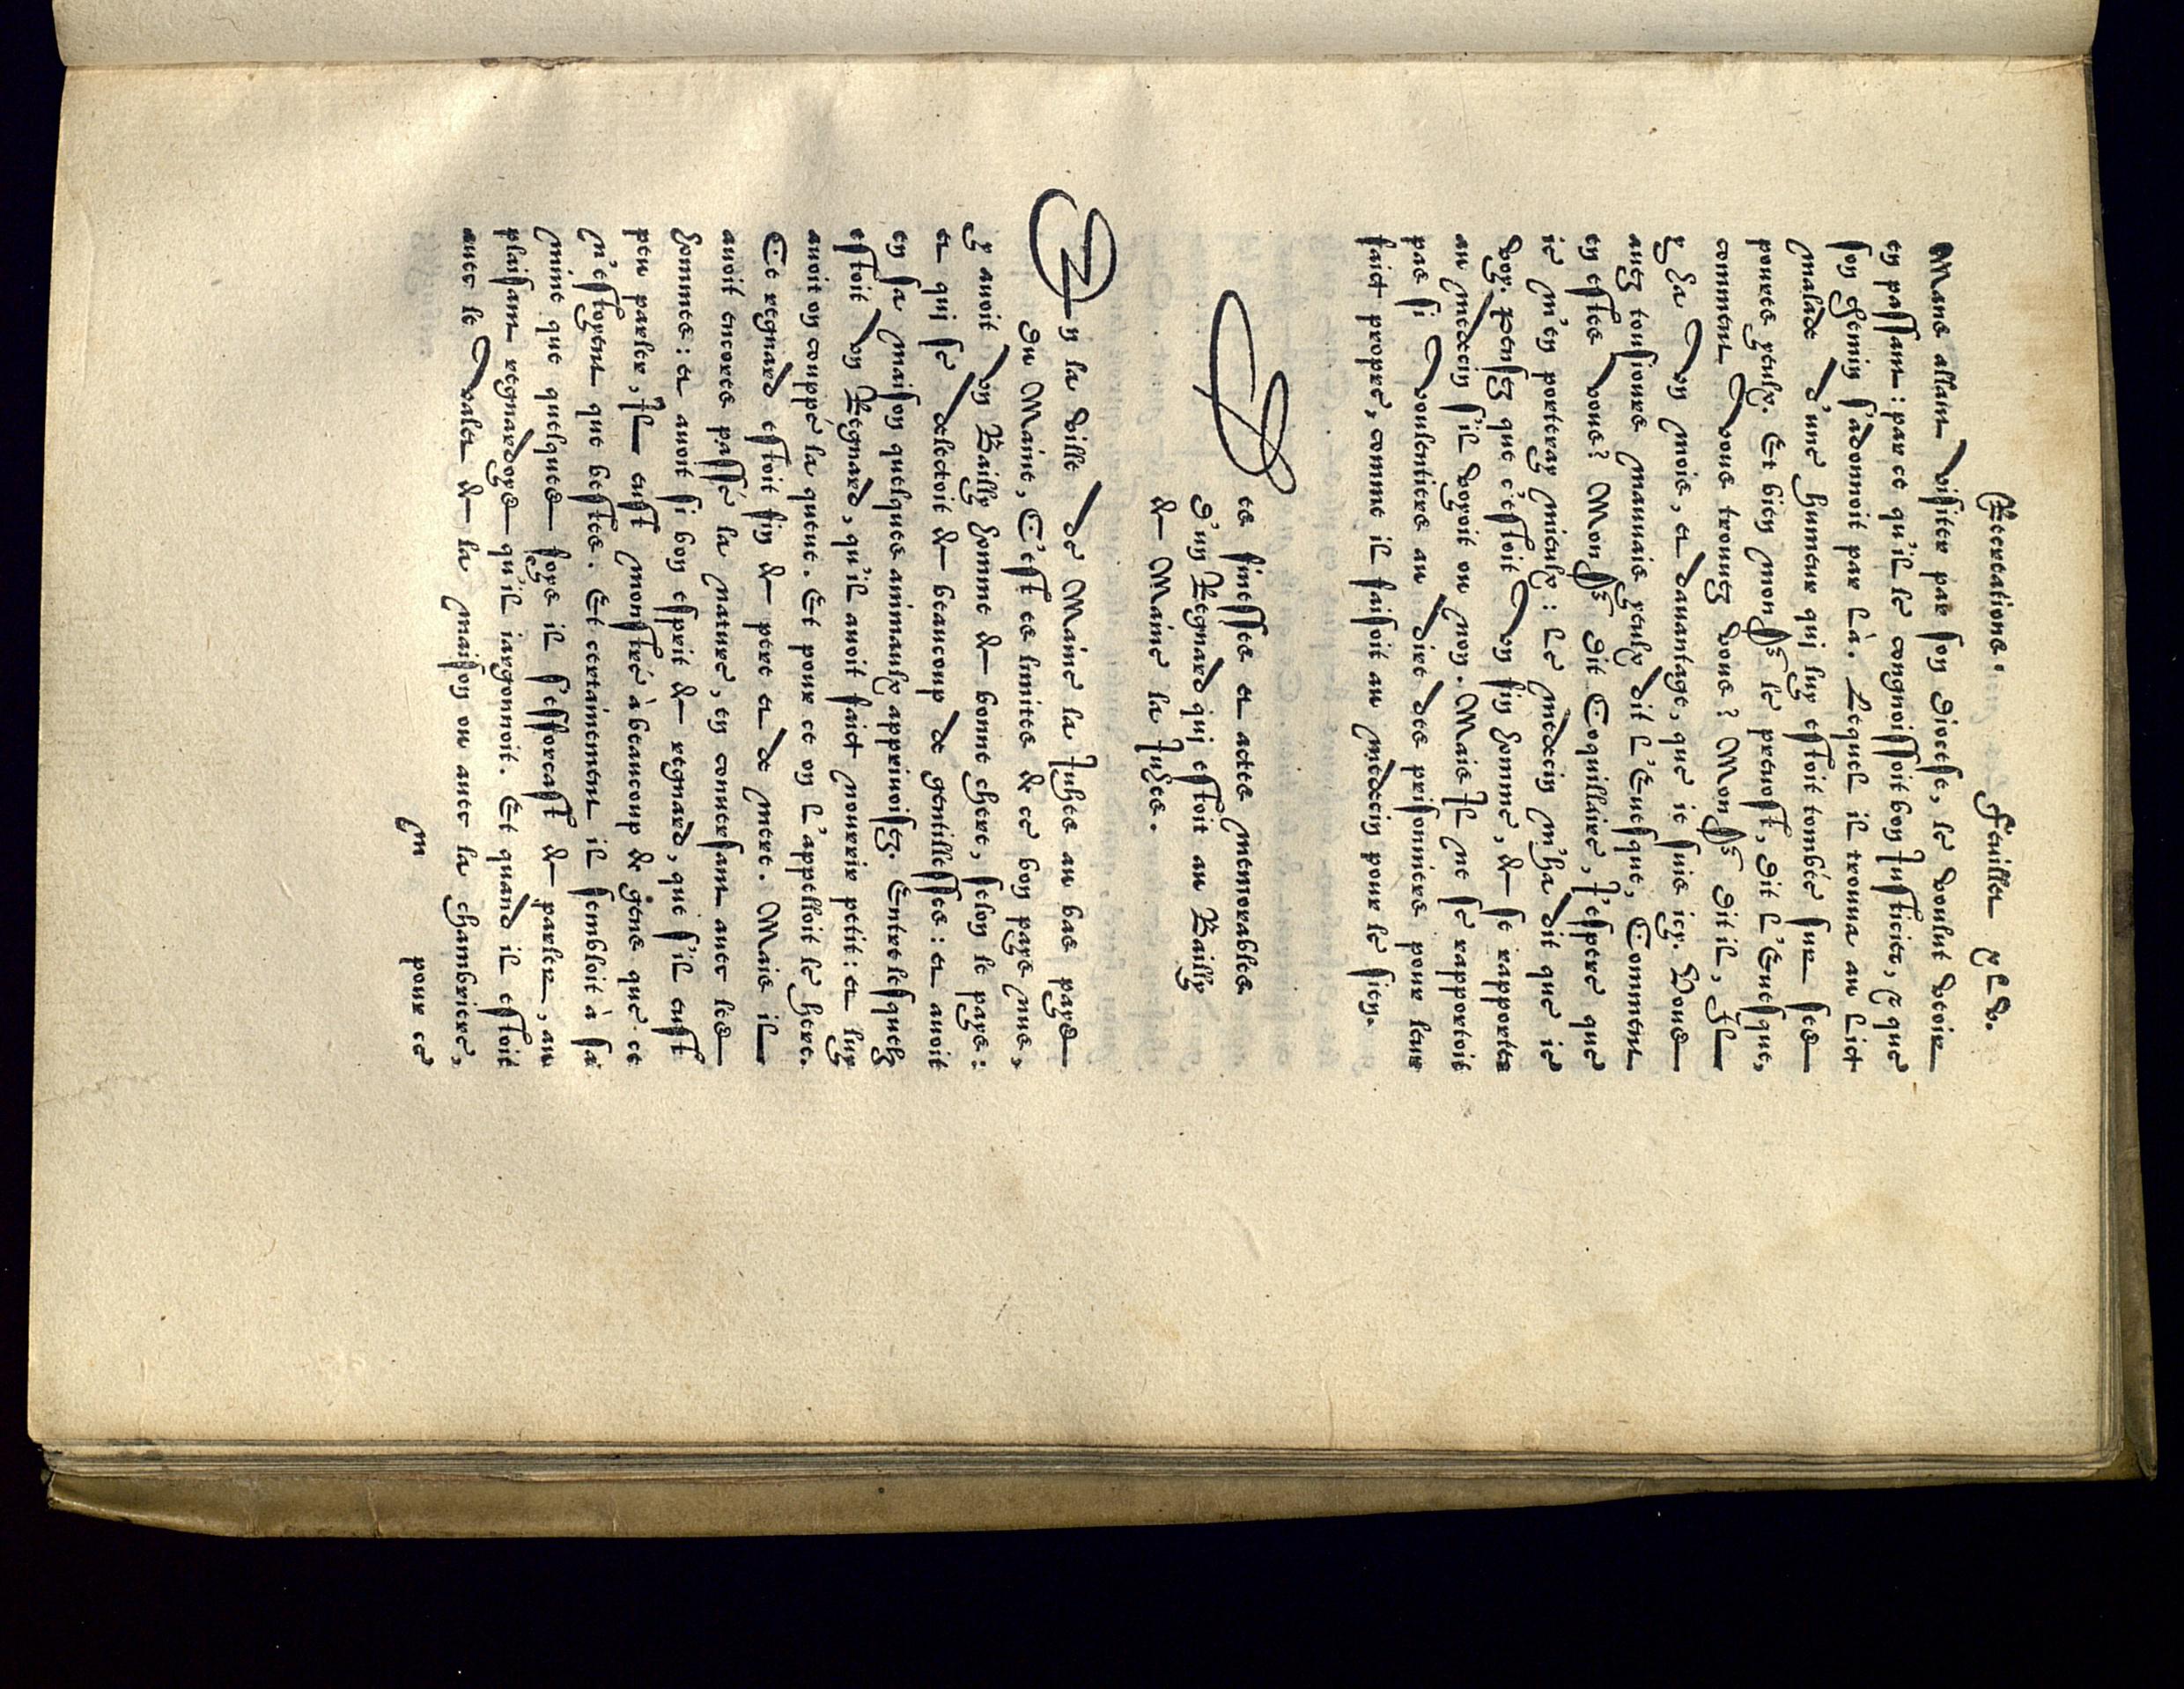 Recreations. Feuillet xlv.
Mans allant visiter par son diocese, le voulut veoir
en passant: par ce qu'il le congnoissoit bon Justicier, & que
son chemin s'adonnoit par là. Lequel il trouva au lict
malade d'une humeur qui luy estoit tombée sur ses
pources yeulx. Et bien mons.r le prevost, dit l'Evesque,
comment vous trouvez vous? Mons.r dit il, Il
y ha un mois, et davantage, que je suis icy. Vous
avez tousjours mauvais yeulx dit l'Evesque, Comment
en estes vous? Mons.r dit Coquillaire, J'espere que
je m'en porteray mieulx: Le medecin m'ha dit que je
voy. Pensez que c'estoit un fin homme, de se rapporter
au medecin s'il voyoit ou non. Mais Il ne se rapportoit
pas si voulentiers au dire des prisonniers pour leur
faict propre, comme il faisoit au medecin pour le sien.
Des finesses et actes memorables
d'un Regnard qui estoit au Bailly
de Maine la Juhes.
En la ville de Maine la Juhes au bas pays
du Maine, C'est es limites de ce bon pays mue,
y avoit un Bailly homme de bonne chere, selon le pays:
et qui se delectoit de beaucoup de gentillesses: et avoit
en sa maison quelques animaulx apprivoisez. Entre lesquelz
estoit un Regnard, qu'il avoit faict nourrir petit: et luy
avoit on couppé la queue. Et pour ce on l'appelloit le here.
Ce regnard estoit fin de pere et de mere. Mais il
avoit encores passé la nature, en conversant avec les
hommes: et avoit si bon esprit de regnard, que s'il eust
peu parler, Il eust monstré à beaucoup de gens que ce
n'estoyent que bestes. Et certainement il sembloit à sa
mine que quelques foys il s'efforcast de parler, au
plaisant regnardoys qu'il jargonnoit. Et quand il estoit
avec le valet de la maison ou avec la chambriere,
m pour ce